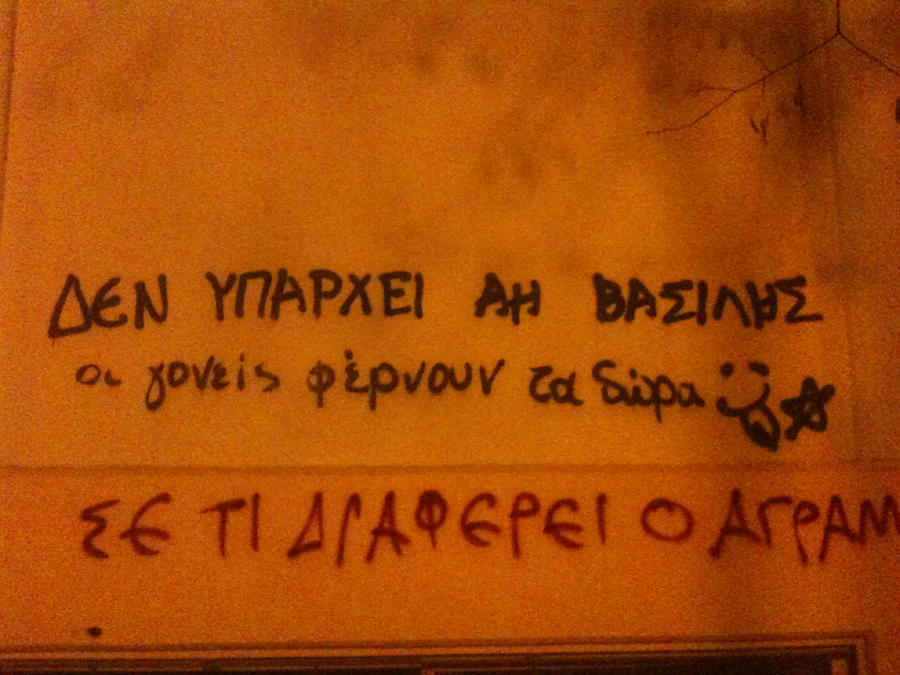 ΔΕΝ ΥΠΑΡΧΕΙ ΑΗ ΒΑΣΙΛΗΣ
οι γονείς φέρνουν τα δώρα
ΣΕ ΤΙ ΔΙΑΦΕΡΕΙ Ο ΑΓΡΑΜ